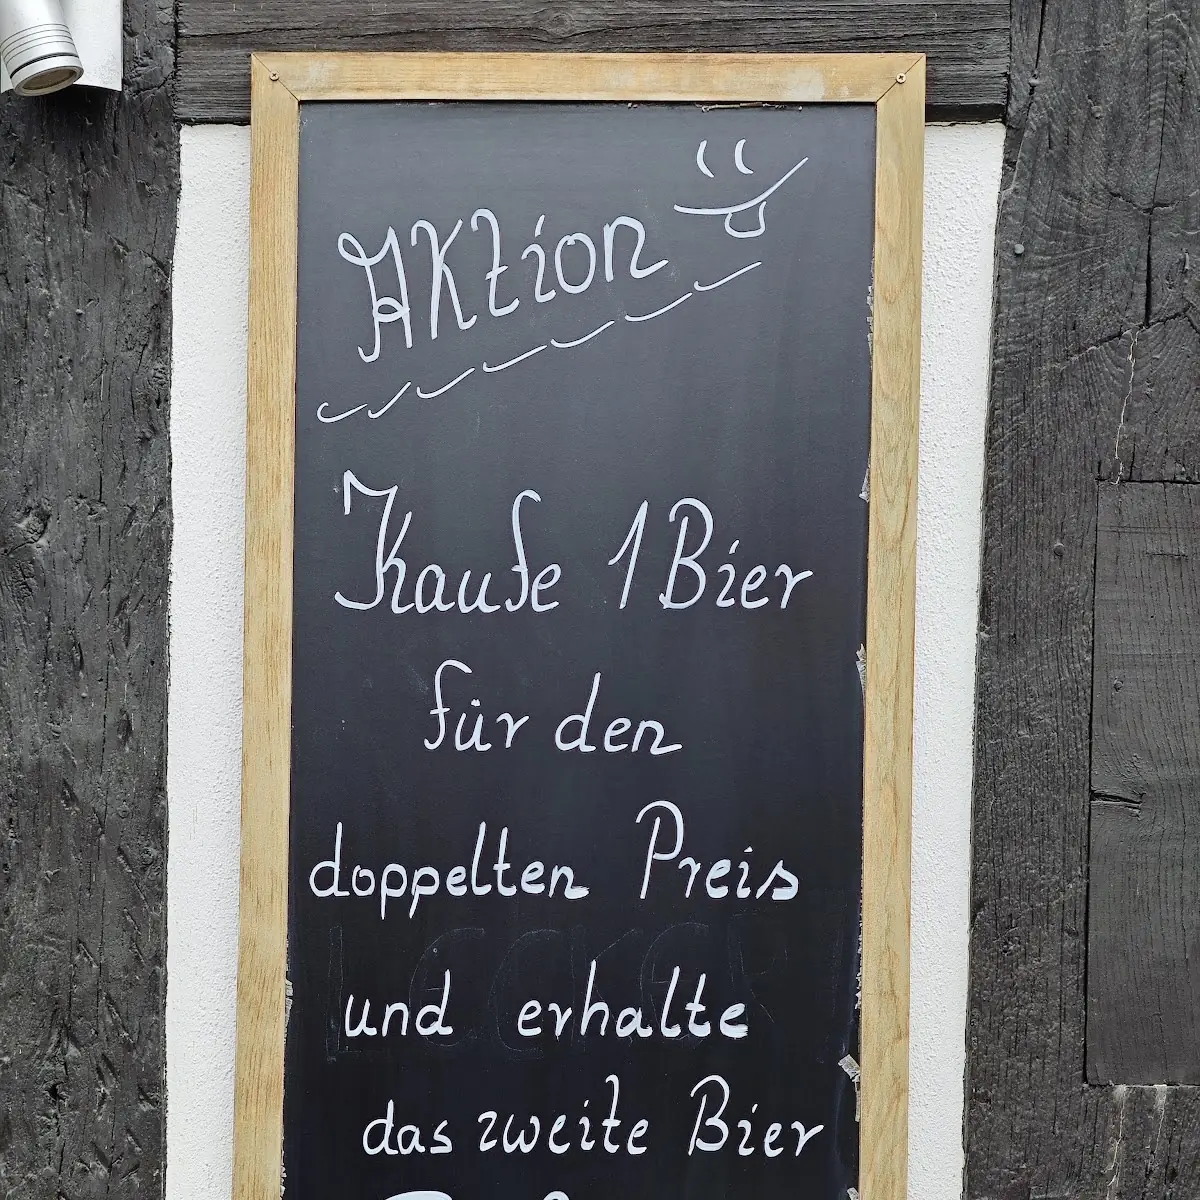 Aktion
Kaufe 1 Bier
für den
doppelten Preis
und erhalte
das zweite Bier